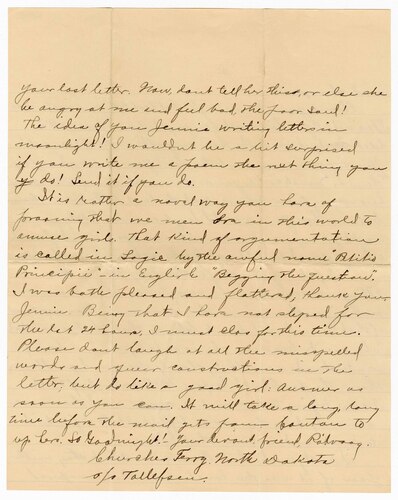 your last letter. Now, dont tell her this, or else she
be angry at me and feel bad the poor soul!
The idea of you Jennie writing letters in
moonlight! I wouldnt be a bit surprised
if you write me a poem the next thing you
do! Send it if you do.
It is rather a novel way you have of
prooving that we men are in this world to
amuse girls. That kind of argumentation
is called in Logic by the awful name "Petitio
Principii" in English "Begging the question".
I was both pleased and flattered, thank your
Jennie Being that I have not sleped for
the last 24 hours, I must close for this time.
Please dont laugh at all the misspelled
words and queer constructions in the
letter, but do like a good girl: Answer as
soon as you can. It will take a long long
time before the mail gets from Canton to
up here. So Goodnight! Your devoted friend
Churches Ferry North Dakota
c/o Tollefsen.